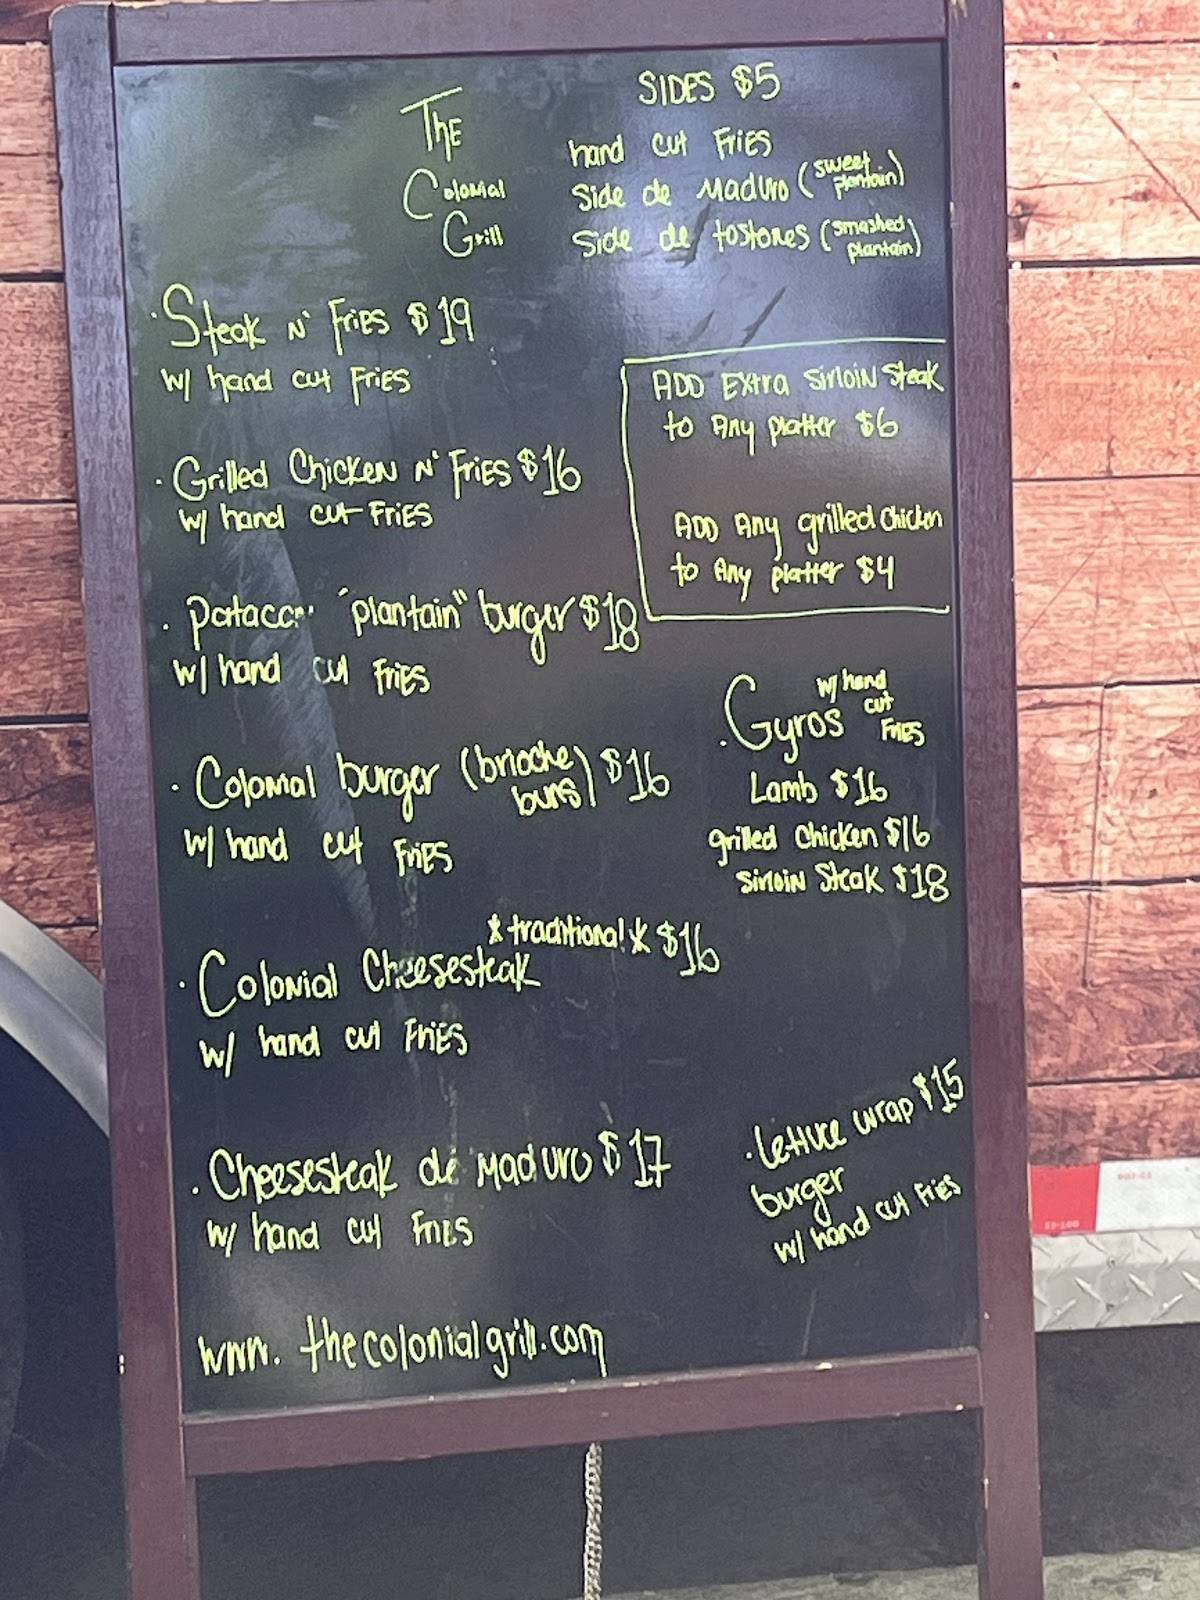 The
Colonial
Grill
SIDES $5
hand cut Fries
Side de Maduro (sweet plantain)
Side de tostones (smashed plantain)
· Steak N' Fries $19
w/ hand cut Fries
· Grilled Chicken N' Fries $16
w/ hand cut Fries
· "plantain" burger $18
w/ hand cut Fries
· Colonial burger (brioche buns) $16
w/ hand cut Fries
*traditional* $16
· Colonial Cheesesteak
w/ hand cut Fries
· Cheesesteak de Maduro $17
w/ hand cut Fries
ADD Extra Sirloin Steak
to Any platter $6
ADD Any grilled chicken
to Any platter $4
· Gyros w/ hand cut Fries
Lamb $16
grilled chicken $16
Sirloin Steak $18
· lettuce wrap $15
burger
w/ hand cut Fries
www.thecolonialgrill.com